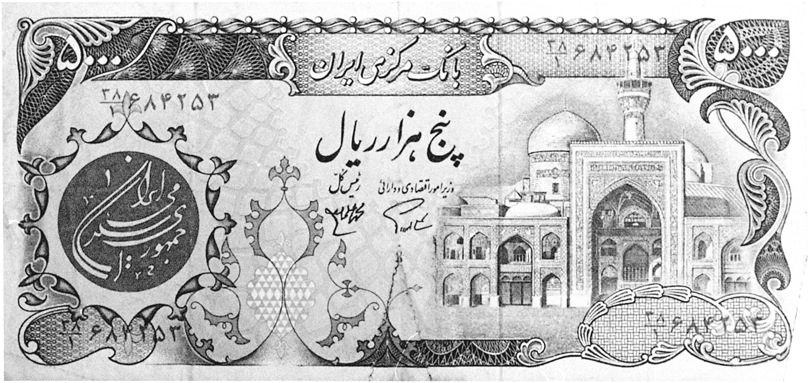 ۵۰۰۰
بانک مرکزی ایران
۵۰۰۰
۲۸/۱ ۶۸۴۲۵۳
۲۸/۱ ۶۸۴۲۵۳
پنج هزار ریال
وزیر امور اقتصادی و دارائی
رئیس کل
جمهوری اسلامی ایران
۲۸/۱ ۶۸۴۲۵۳
۲۸/۱ ۶۸۴۲۵۳